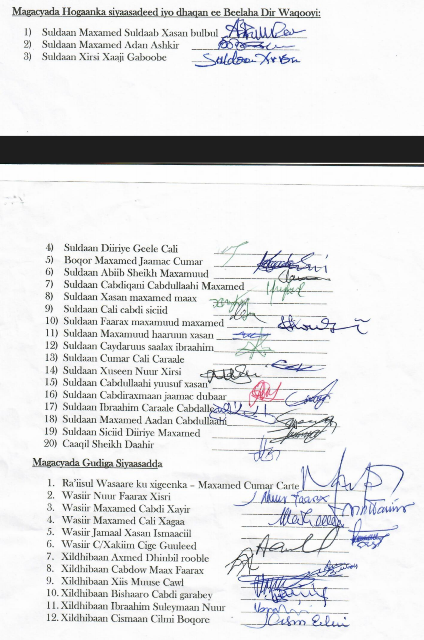 Magacyada Hogaanka siyaasadeed iyo dhaqan ee Beelaha Dir Waqooyi:
1) Suldaan Maxamed Suldaab Xasan bulbul
2) Suldaan Maxamed Adan Ashkir
3) Suldaan Xirsi Xaaji Gaboobe Suldaan Xirsi
4) Suldaan Diiriye Geele Cali
5) Boqor Maxamed Jaamac Cumar
6) Suldaan Abiib Sheikh Maxamuud
7) Suldaan Cabdiqani Cabdullaahi Maxamed
8) Suldaan Xasan maxamed maax
9) Suldaan Cali cabdi siciid
10) Suldaan Faarax maxamuud maxamed
11) Suldaan Maxamuud haaruun xasan
12) Suldaan Caydaruus saalax ibraahim
13) Suldaan Cumar Cali Caraale
14) Suldaan Xuseen Nuur Xirsi
15) Suldaan Cabdullaahi yuusuf xasan
16) Suldaan Cabdiraxmaan jaamac dubaar
17) Suldaan Ibraahim Caraale Cabdalle
18) Suldaan Maxamed Aadan Cabdullaahi
19) Suldaan Siciid Diiriye Maxamed
20) Caaqil Sheikh Daahir
Magacyada Gudiga Siyaasadda
1. Ra'iisul Wasaare ku xigeenka – Maxamed Cumar Carte
2. Wasiir Nuur Faarax Xisri Nuur Faarax
3. Wasiir Maxamed Cabdi Xayir
4. Wasiir Maxamed Cali Xagaa
5. Wasiir Jamaal Xasan Ismaaciil
6. Wasiir C/Xakiim Cige Guuleed
7. Xildhibaan Axmed Dhinbil rooble
8. Xildhibaan Cabdow Maax Faarax
9. Xildhibaan Xiis Muuse Cawl
10. Xildhibaan Bishaaro Cabdi garabey
11. Xildhibaan Ibraahim Suleymaan Nuur
12. Xildhibaan Cismaan Cilmi Boqore